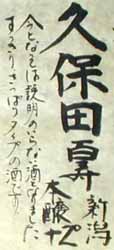 久保田百寿
新潟
本醸+6
今となっては説明のいらない酒となりました
すっきりさっぱりタイプの酒です